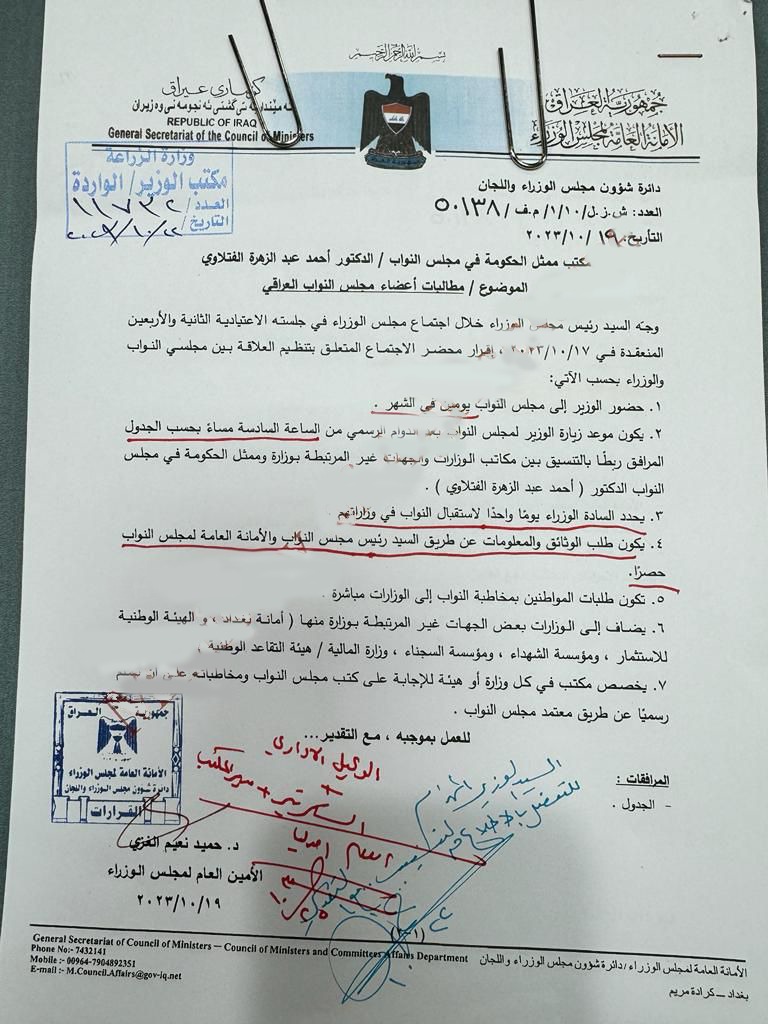 بسم الله الرحمن الرحيم
جمهورية العراق
الأمانة العامة لمجلس الوزراء
كۆماری عیراق
REPUBLIC OF IRAQ
General Secretariat of the Council of Ministers
وزارة الزراعة
مكتب الوزير / الواردة
العدد / ١١٧٣٢
التاريخ /
دائرة شؤون مجلس الوزراء واللجان
العدد: ش.ز.ل/١/١٠/م.ف/٥٠١٣٨
التاريخ: ١٩/ ١٠/ ٢٠٢٣
مكتب ممثل الحكومة في مجلس النواب / الدكتور أحمد عبد الزهرة الفتلاوي
الموضوع / مطالبات أعضاء مجلس النواب العراقي
وجه السيد رئيس مجلس الوزراء خلال اجتماع مجلس الوزراء في جلسته الاعتيادية الثانية والأربعين
المنعقدة في ٢٠٢٣/١٠/١٧ ، إقرار محضر الاجتماع المتعلق بتنظيم العلاقة بين مجلسي النواب
والوزراء بحسب الآتي:
١. حضور الوزير إلى مجلس النواب يومين في الشهر .
٢. يكون موعد زيارة الوزير لمجلس النواب بعد الدوام الرسمي من الساعة السادسة مساءً بحسب الجدول
المرافق ربطًا بالتنسيق بين مكاتب الوزارات والجهات غير المرتبطة بوزارة وممثل الحكومة في مجلس
النواب الدكتور ( أحمد عبد الزهرة الفتلاوي ) .
٣. يحدد السادة الوزراء يومًا واحدًا لاستقبال النواب في وزاراتهم
٤. يكون طلب الوثائق والمعلومات عن طريق السيد رئيس مجلس النواب والأمانة العامة لمجلس النواب
حصرًا.
٥. تكون طلبات المواطنين بمخاطبة النواب إلى الوزارات مباشرة .
٦. يضاف إلى الوزارات بعض الجهات غير المرتبطة بوزارة منها ( أمانة بغداد ، و الهيئة الوطنية
للاستثمار ، ومؤسسة الشهداء ، ومؤسسة السجناء ، وزارة المالية / هيئة التقاعد الوطنية
٧. يخصص مكتب في كل وزارة أو هيئة للإجابة على كتب مجلس النواب ومخاطباته على أن
رسميًا عن طريق معتمد مجلس النواب .
للعمل بموجبه ، مع التقدير...
المرافقات :
- الجدول .
جمهورية العراق
الأمانة العامة لمجلس الوزراء
دائرة شؤون مجلس الوزراء واللجان
القرارات
الوكيل الاداري
+
السيد الوزير
للتفضل بالاطلاع
د. حميد نعيم الغزي
الأمين العام لمجلس الوزراء
٢٠٢٣/١٠/١٩
(١-١)
General Secretariat of Council of Ministers – Council of Ministers and Committees Affairs Department
Phone No:- 7432141
Mobile :- 00964-7904892351
E-mail :- M.Council.Affairs@gov-iq.net
الأمانة العامة لمجلس الوزراء / دائرة شؤون مجلس الوزراء واللجان
بغداد – كرادة مريم